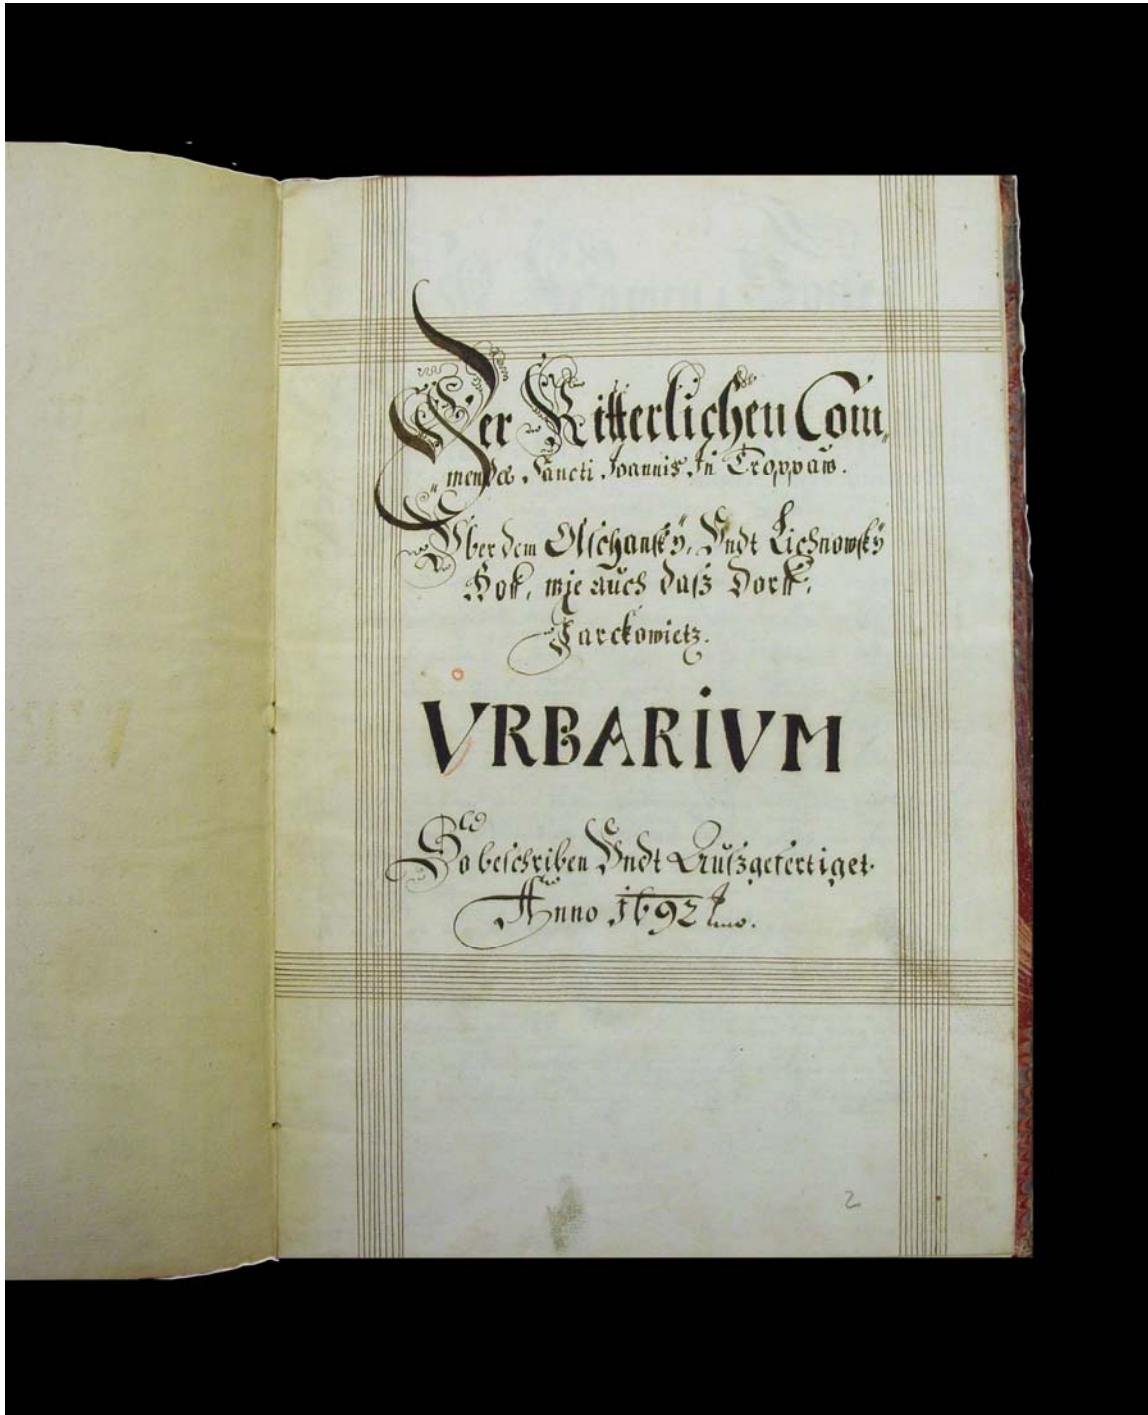 Der Ritterlichen Com„
„mendæ Sancti Joannis In Troppaw.
Vber dem Olschanskÿ, Vndt Lichnowskÿ
Hoff, wie auch dasz Dorff,
Jarckowietz.
VRBARIVM
So beschriben Vndt Auszgefertiget
Anno 1692
2